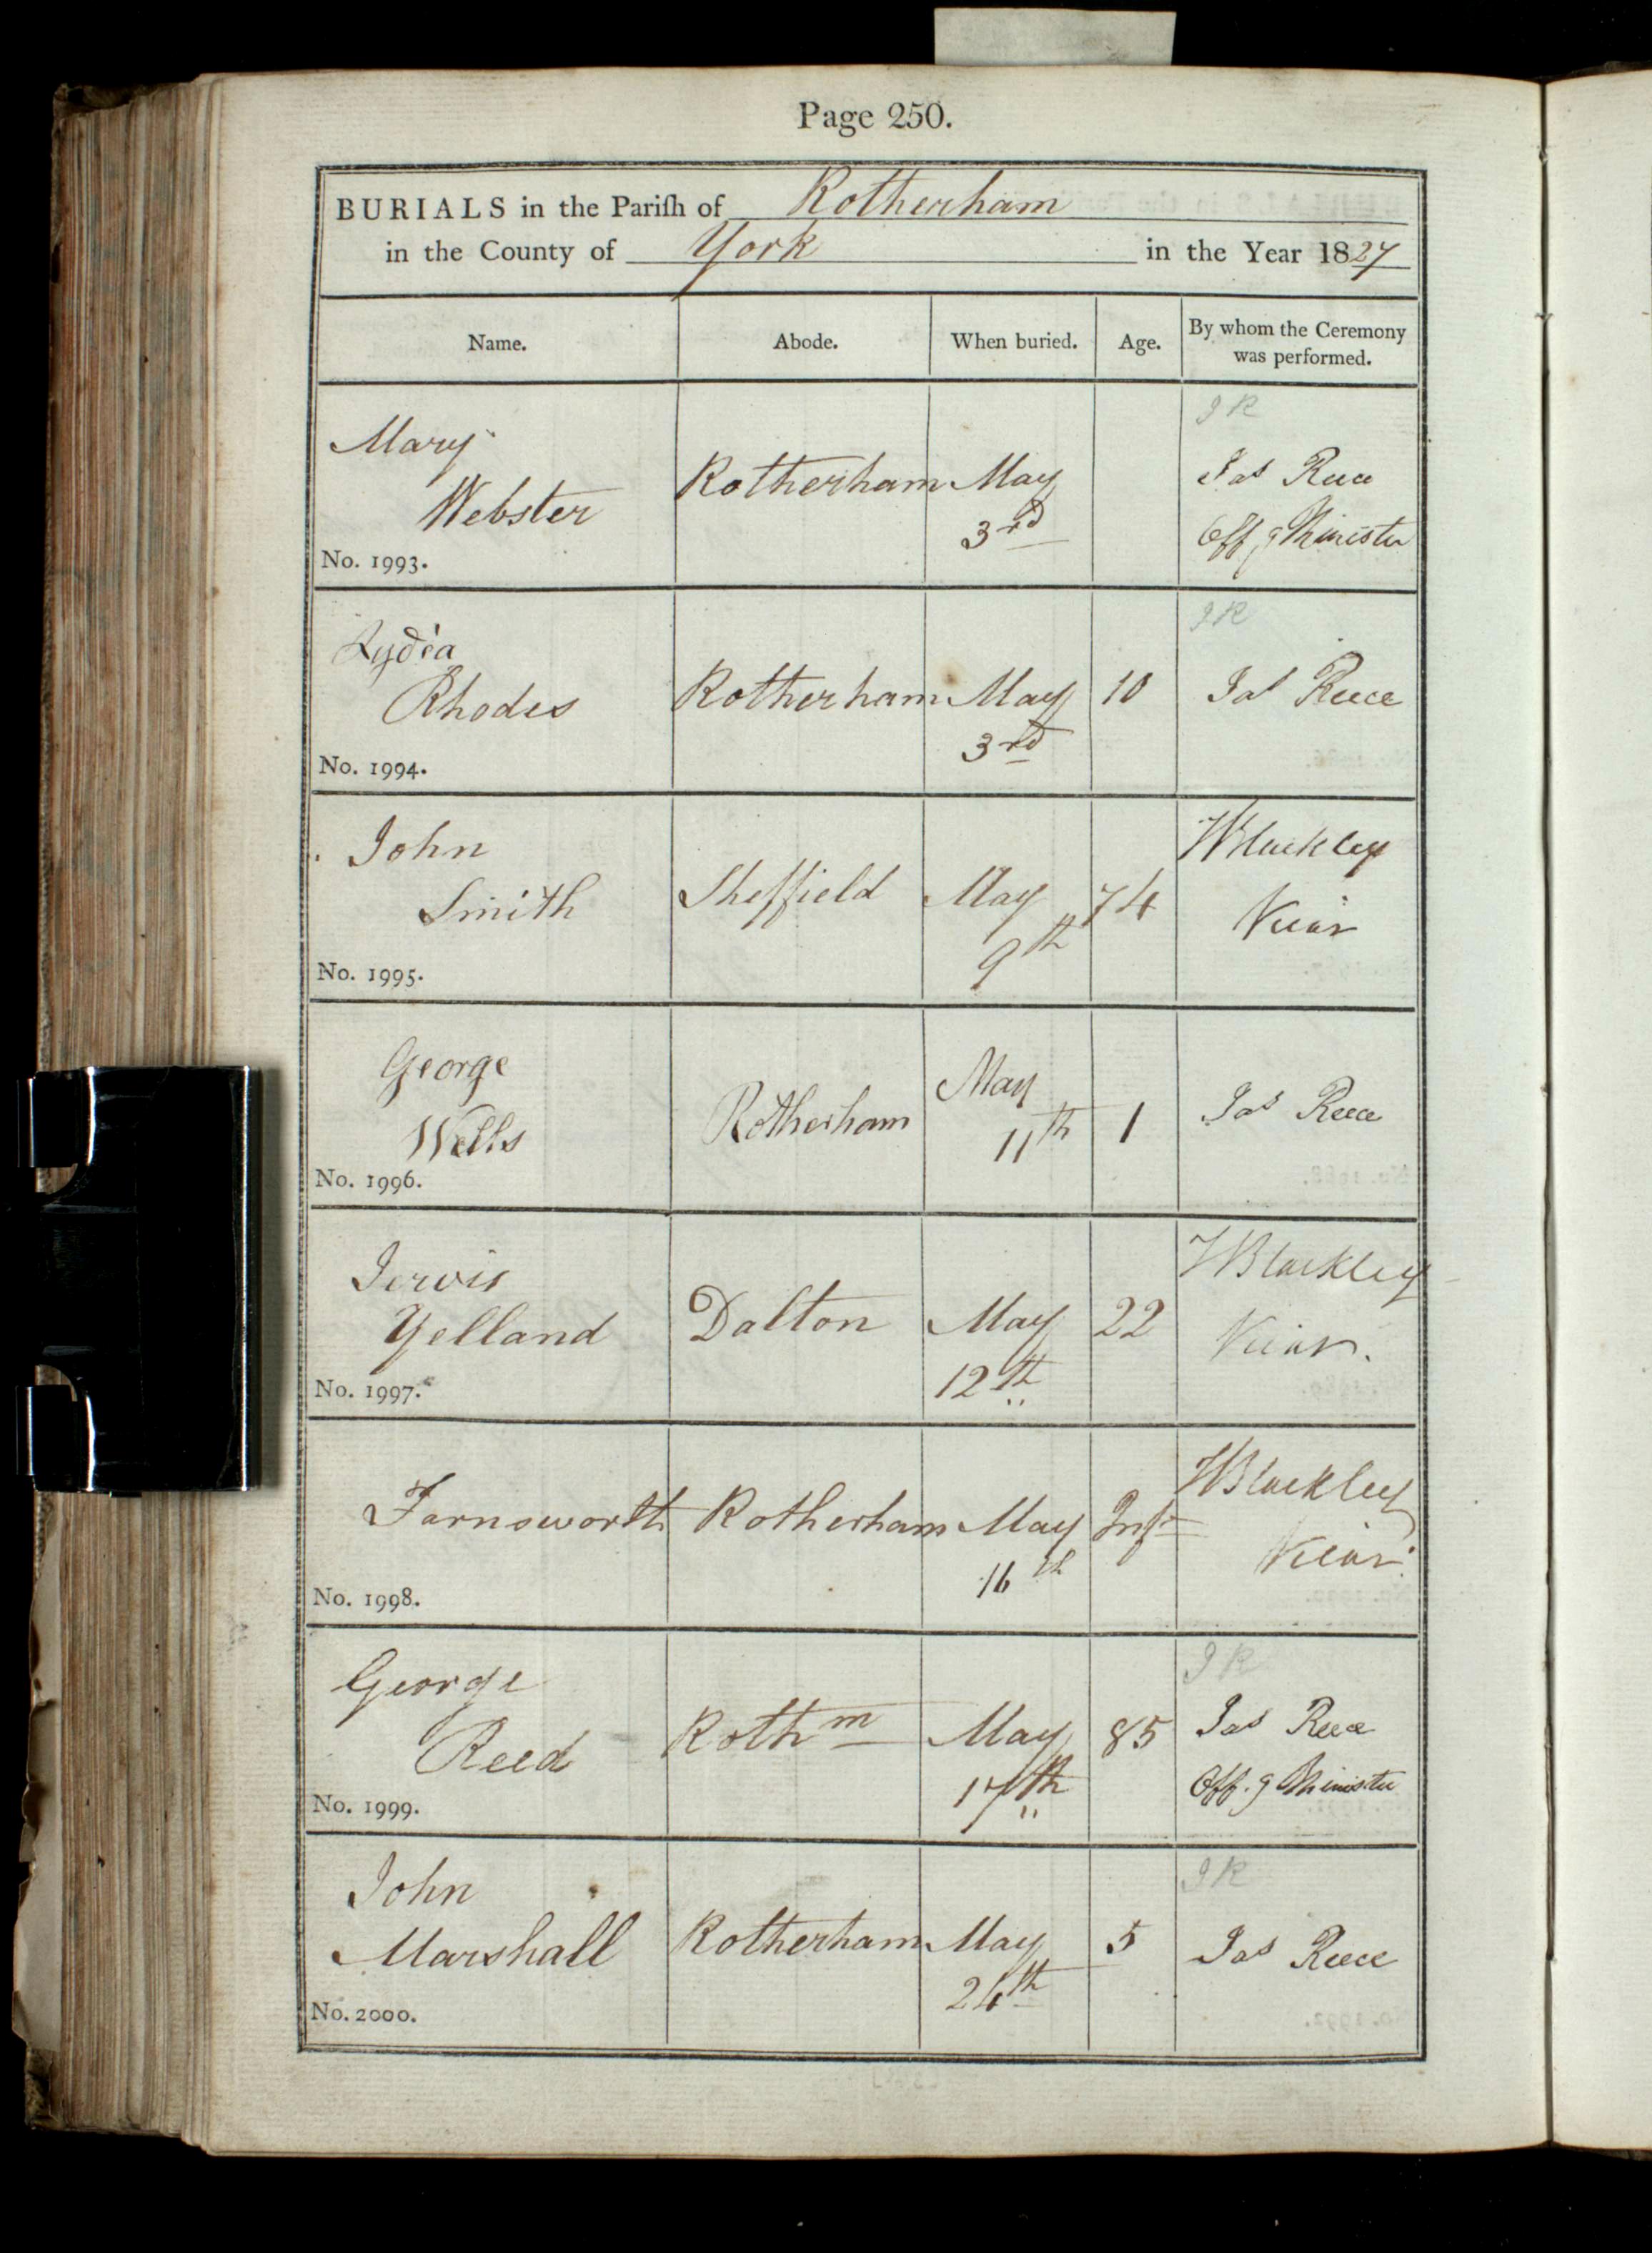 Page 250.
BURIALS in the Pariſh of Rotherham
in the County of York in the Year 1827
Name. Abode. When buried. Age. By whom the Ceremony was performed.
J R
Mary
Webster Rotherham May 3rd Jas Reece
Offg Minister
No. 1993.
J R
Lydia
Rhodes Rotherham May 3rd 10 Jas Reece
No. 1994.
John
Smith Sheffield May 9th 74 Blackley
Vicar
No. 1995.
George
Wells Rotherham May 11th 1 Jas Reece
No. 1996.
Jervis
Yelland Dalton May 12th 22 Blackley
Vicar.
No. 1997.
Farnsworth Rotherham May 16th Inft Blackley
Vicar
No. 1998.
J R
George
Reed Rothm May 17th 85 Jas Reece
Off.g Minister
No. 1999.
J R
John
Marshall Rotherham May 5 Jas Reece
No. 2000.